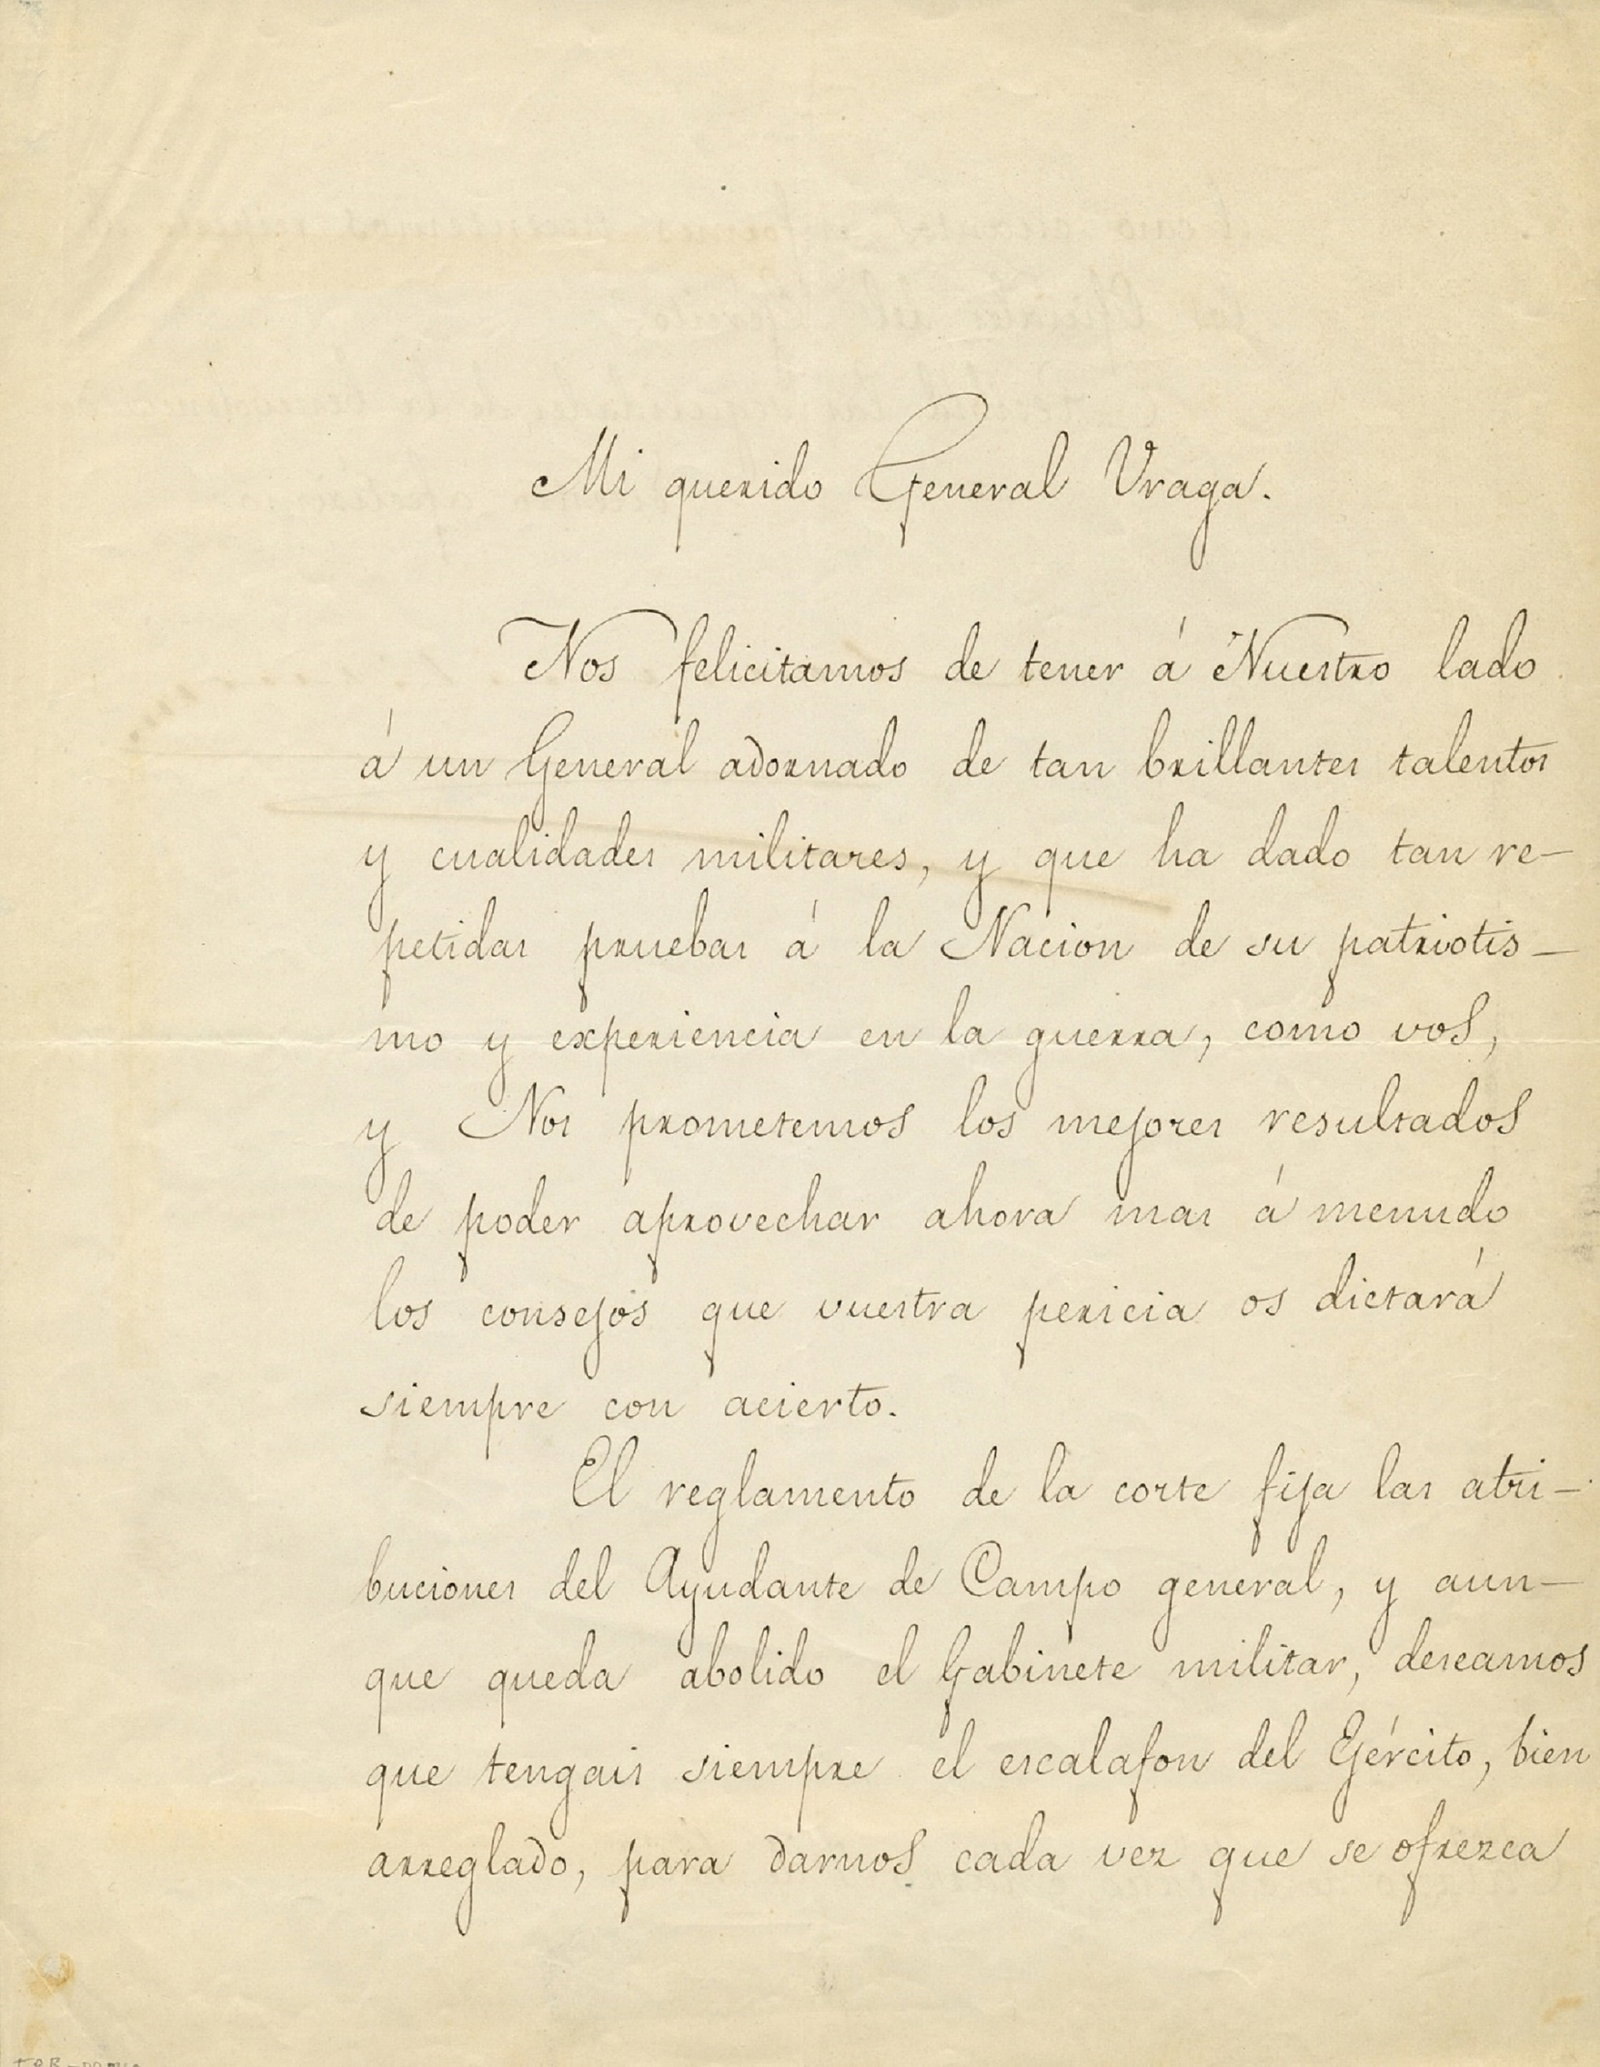 Mi querido General Vraga.
Nos felicitamos de tener á Nuestro lado
á un General adornado de tan brillantes talentos
y cualidades militares, y que ha dado tan re-
petidas pruebas á la Nacion de su patriotis-
mo y experiencia en la guerra, como vos,
y Nos prometemos los mejores resultados
de poder aprovechar ahora mas á menudo
los consejos que vuestra pericia os dictará
siempre con acierto.
El reglamento de la corte fija las atri-
buciones del Ayudante de Campo general, y aun-
que queda abolido el Gabinete militar, deseamos
que tengais siempre el escalafon del Ejército, bien
arreglado, para darnos cada vez que se ofrezca